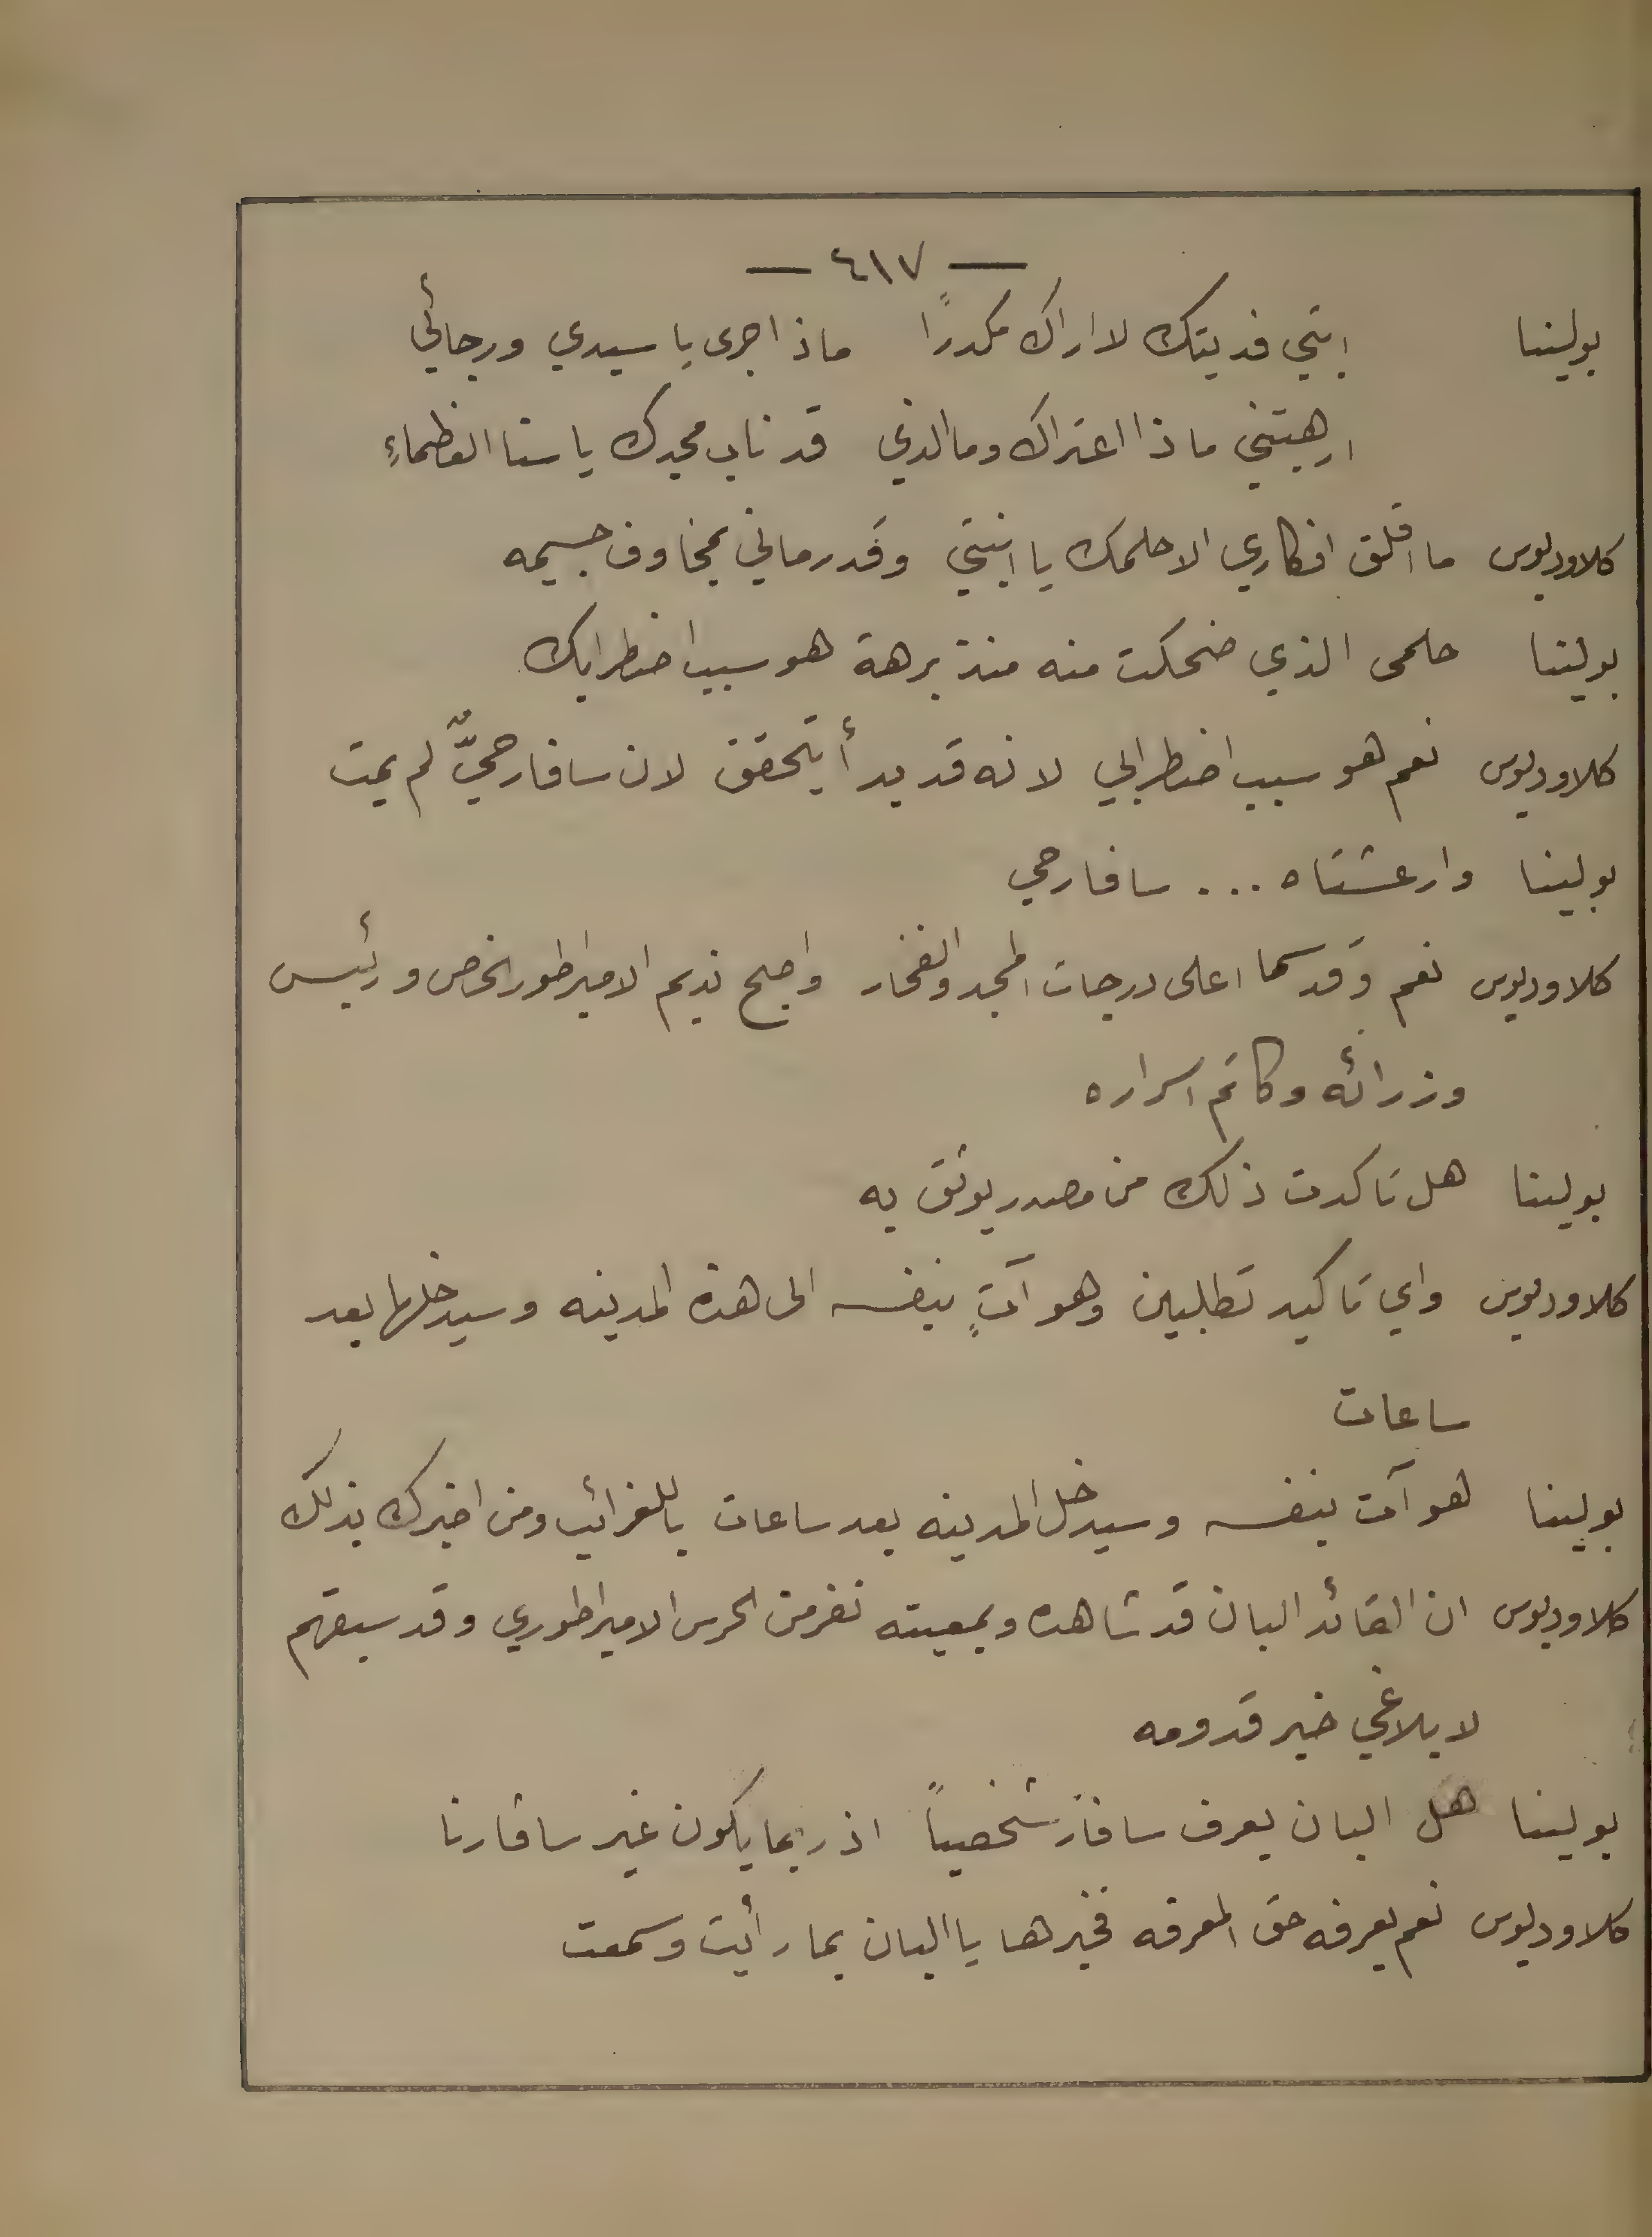 — ٤١٧ —
بولينا ابتي فديتك لا اراك مكدرًا ماذا جرى يا سيدي ورجائي
ارهبتني ماذا اعتراك وما الذي قد ناب مجدك يا سنا العظماءِ
كلاوديوس ما اقلق افكاري الا حلمك يا ابنتي وقد رماني بمخاوف جسيمه
بولينا حلمى الذي ضحكت منه منذ برهة هو سبب اضطرابك
كلاوديوس نعم هو سبب اضطرابي لانه قد بدأ يتحقق لان سافار حيٌّ لم يمت
بولينا وارعشتاه ... سافار حي
كلاوديوس نعم وقد سما اعلى درجات المجد والفخار واصبح نديم الامبراطور الخاص ورئيس
وزرائه وكاتم اسراره
بولينا هل تاكدت ذلك من مصدر يوثق به
كلاوديوس واي تاكيد تطلبين وهو آتٍ بنفسه الى هذه المدينه وسيدخلها بعد
ساعات
بولينا هو آت بنفسه وسيدخل المدينه بعد ساعات ياللغرائب ومن اخبرك بذلك
كلاوديوس ان القائد البان قد شاهده وبمعيته نفر من الحرس الامبراطوري وقد سبقهم
لابلاغي خبر قدومه
بولينا هل البان يعرف سافار شخصياً اذ ربما يكون غير سافارنا
كلاوديوس نعم يعرفه حق المعرفه فخبرها يا البان بما رأيت وسمعت